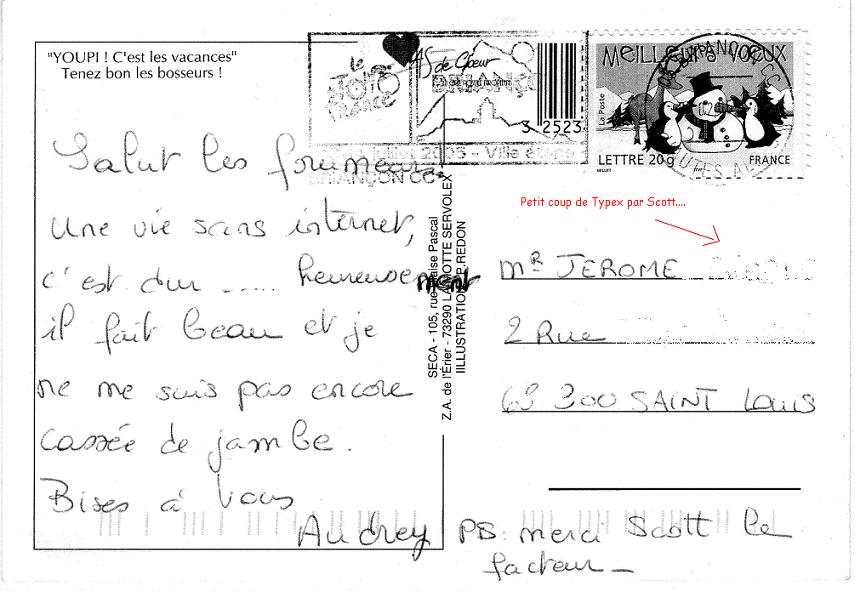 "YOUPI ! C'est les vacances"
Tenez bon les bosseurs !
Salut les foru
Une vie sans internet,
c'est dur ..... heureusement
il fait beau et je
ne me suis pas encore
cassée de jambe.
Bises à vous
Audrey
le
TOUR
FRANCE
AS de Coeur
BRIANÇ
3 2523
2005 - Ville étape
BRIANÇON CC
SECA - 105, rue Blaise Pascal
Z.A. de l'Érier - 73290 LA MOTTE SERVOLEX
ILLUSTRATION P.REDON
MEILLEURS VOEUX
La Poste
LETTRE 20g
FRANCE
BRIANÇON CC
Petit coup de Typex par Scott....
MR JEROME
2 Rue
68 300 SAINT Louis
PS: merci Scott le
facteur _